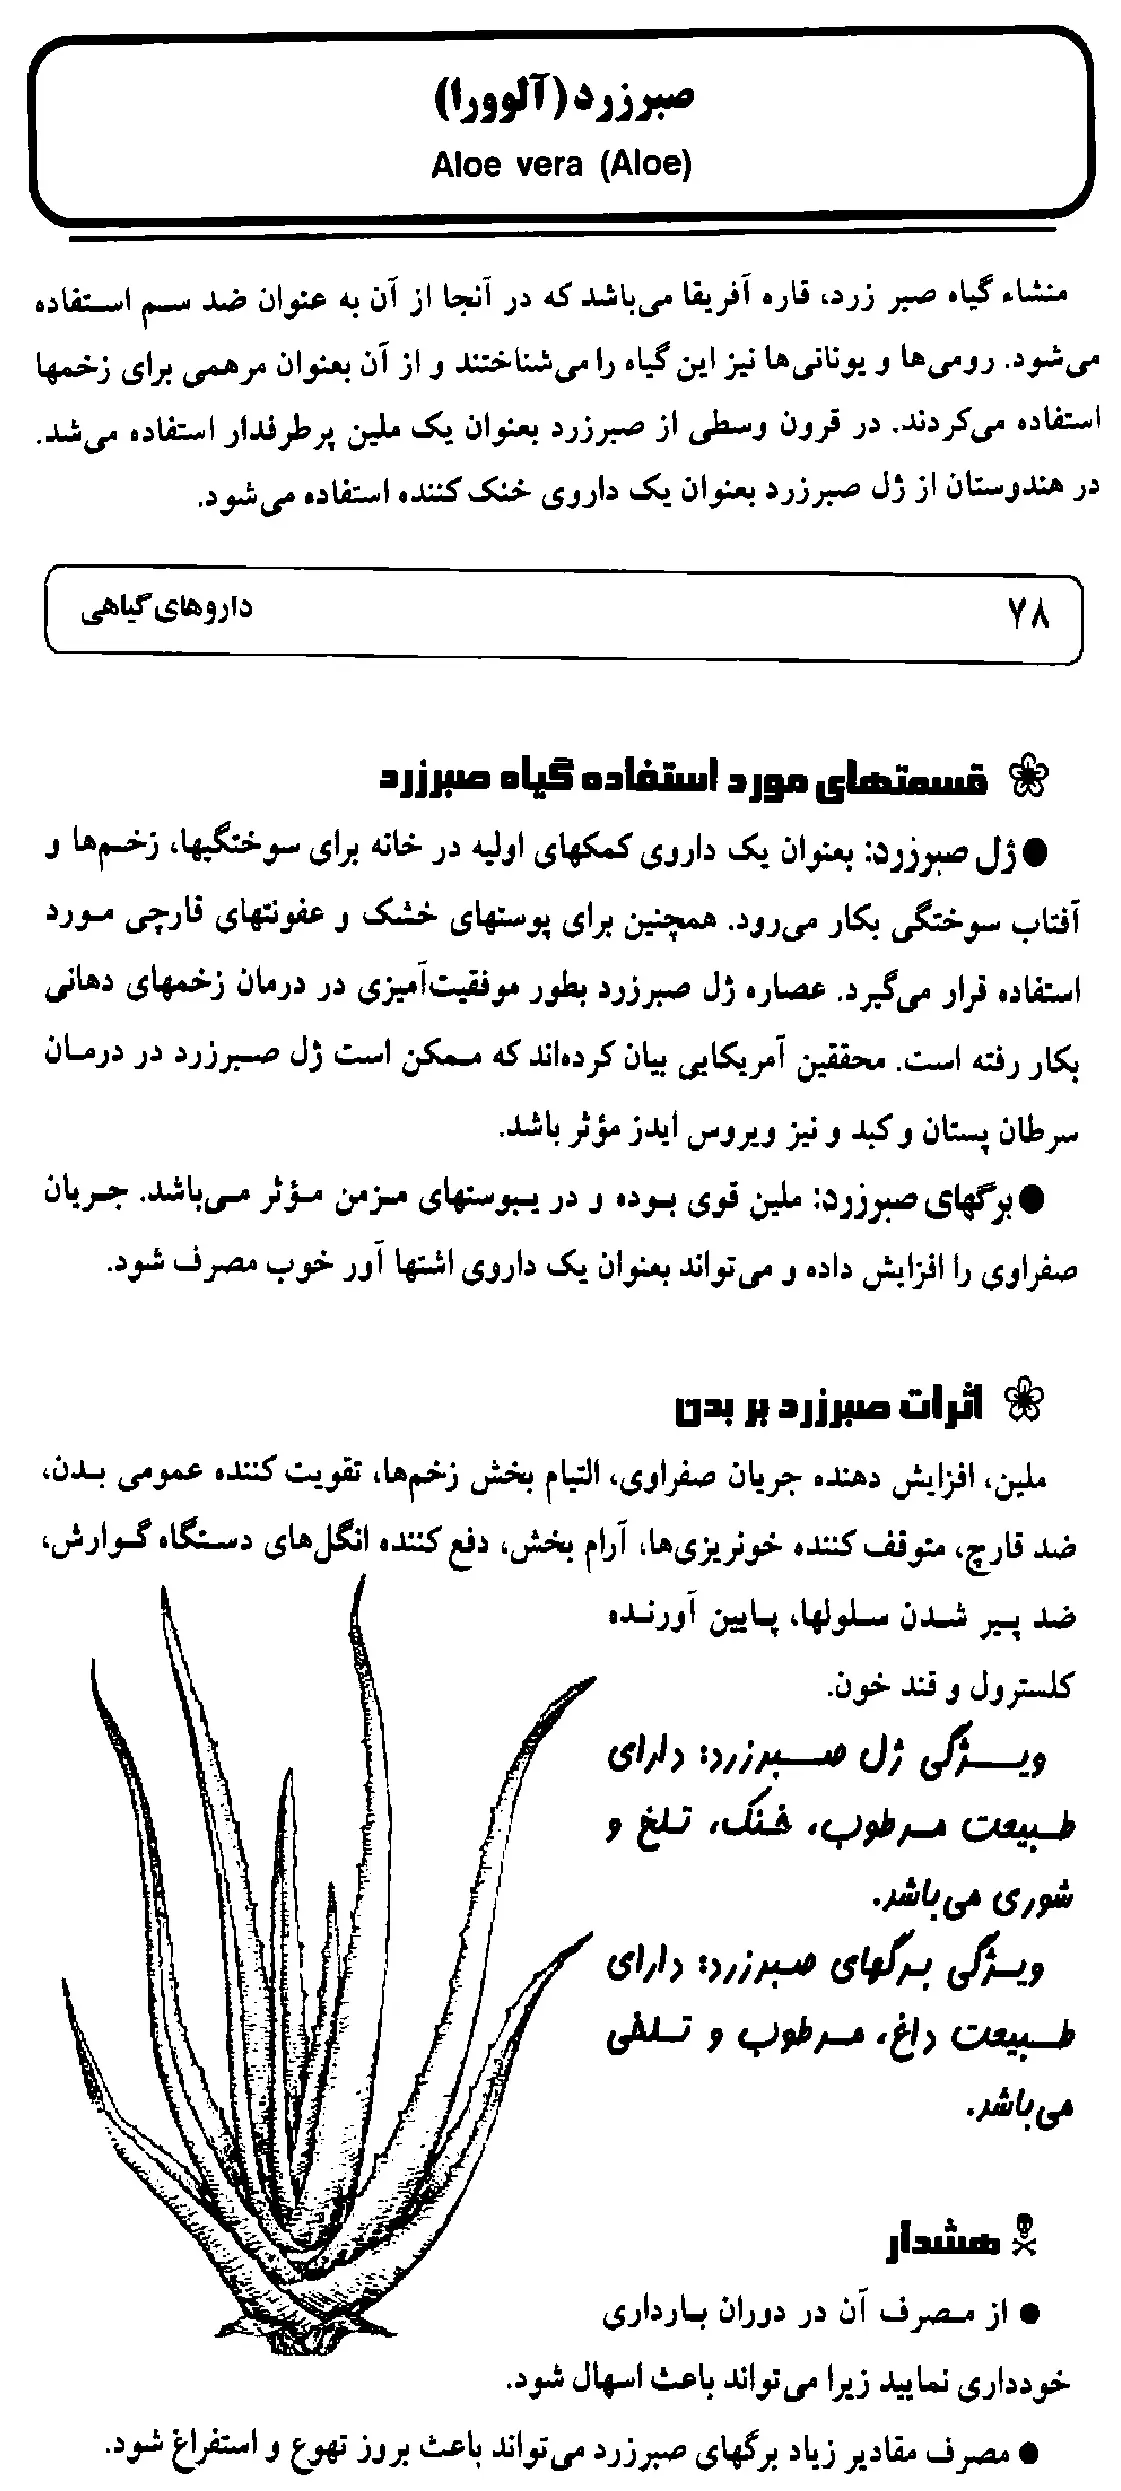 صبرزرد (آلوورا)
Aloe vera (Aloe)
منشاء گیاه صبر زرد، قاره آفریقا می‌باشد که در آنجا از آن به عنوان ضد سم استفاده
می‌شود. رومی‌ها و یونانی‌ها نیز این گیاه را می‌شناختند و از آن بعنوان مرهمی برای زخمها
استفاده می‌کردند. در قرون وسطی از صبرزرد بعنوان یک ملین پرطرفدار استفاده می‌شد.
در هندوستان از ژل صبرزرد بعنوان یک داروی خنک کننده استفاده می‌شود.
۷۸ داروهای گیاهی
قسمتهای مورد استفاده گیاه صبرزرد
● ژل صبرزرد: بعنوان یک داروی کمکهای اولیه در خانه برای سوختگیها، زخم‌ها و
آفتاب سوختگی بکار می‌رود. همچنین برای پوستهای خشک و عفونتهای قارچی مورد
استفاده قرار می‌گیرد. عصاره ژل صبرزرد بطور موفقیت‌آمیزی در درمان زخمهای دهانی
بکار رفته است. محققین آمریکایی بیان کرده‌اند که ممکن است ژل صبرزرد در درمان
سرطان پستان و کبد و نیز ویروس ایدز مؤثر باشد.
● برگهای صبرزرد: ملین قوی بوده و در یبوستهای مزمن مؤثر می‌باشد. جریان
صفراوی را افزایش داده و می‌تواند بعنوان یک داروی اشتها آور خوب مصرف شود.
اثرات صبرزرد بر بدن
ملین، افزایش دهنده جریان صفراوی، التیام بخش زخم‌ها، تقویت کننده عمومی بدن،
ضد قارچ، متوقف کننده خونریزی‌ها، آرام بخش، دفع کننده انگل‌های دستگاه گوارش،
ضد پیر شدن سلولها، پایین آورنده
کلسترول و قند خون.
ویژگی ژل صبرزرد: دارای
طبیعت مرطوب، خنک، تلخ و
شوری می‌باشد.
ویژگی برگهای صبرزرد: دارای
طبیعت داغ، مرطوب و تلخی
می‌باشد.
هشدار
● از مصرف آن در دوران بارداری
خودداری نمایید زیرا می‌تواند باعث اسهال شود.
● مصرف مقادیر زیاد برگهای صبرزرد می‌تواند باعث بروز تهوع و استفراغ شود.